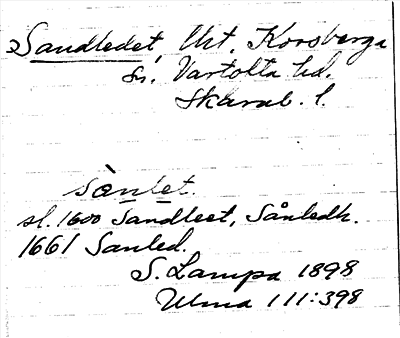 Sandledet, Utt, Korsberga
sn. Vartofta hd.
Skarab. l.
sànlet.
sl. 1600 Sandleet, Sånledh.
1661 Sanled.
S. Lampa 1898
Ulma 111:398